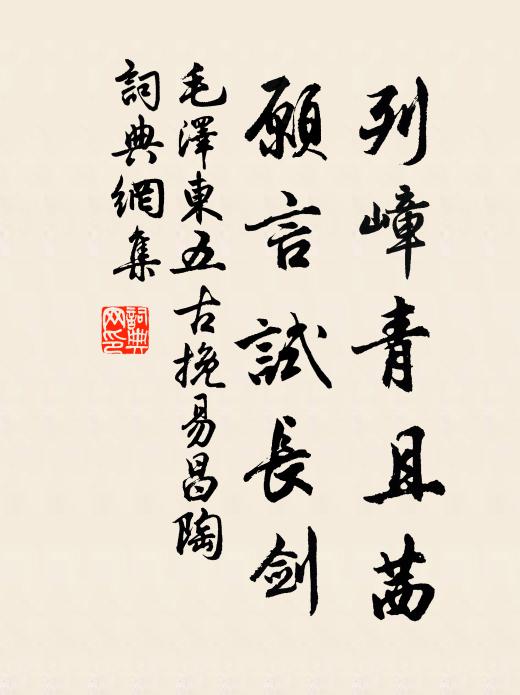 列嶂青且茜
願言試長劍
毛澤東五古挽易昌陶
詞典網集
詞典网印